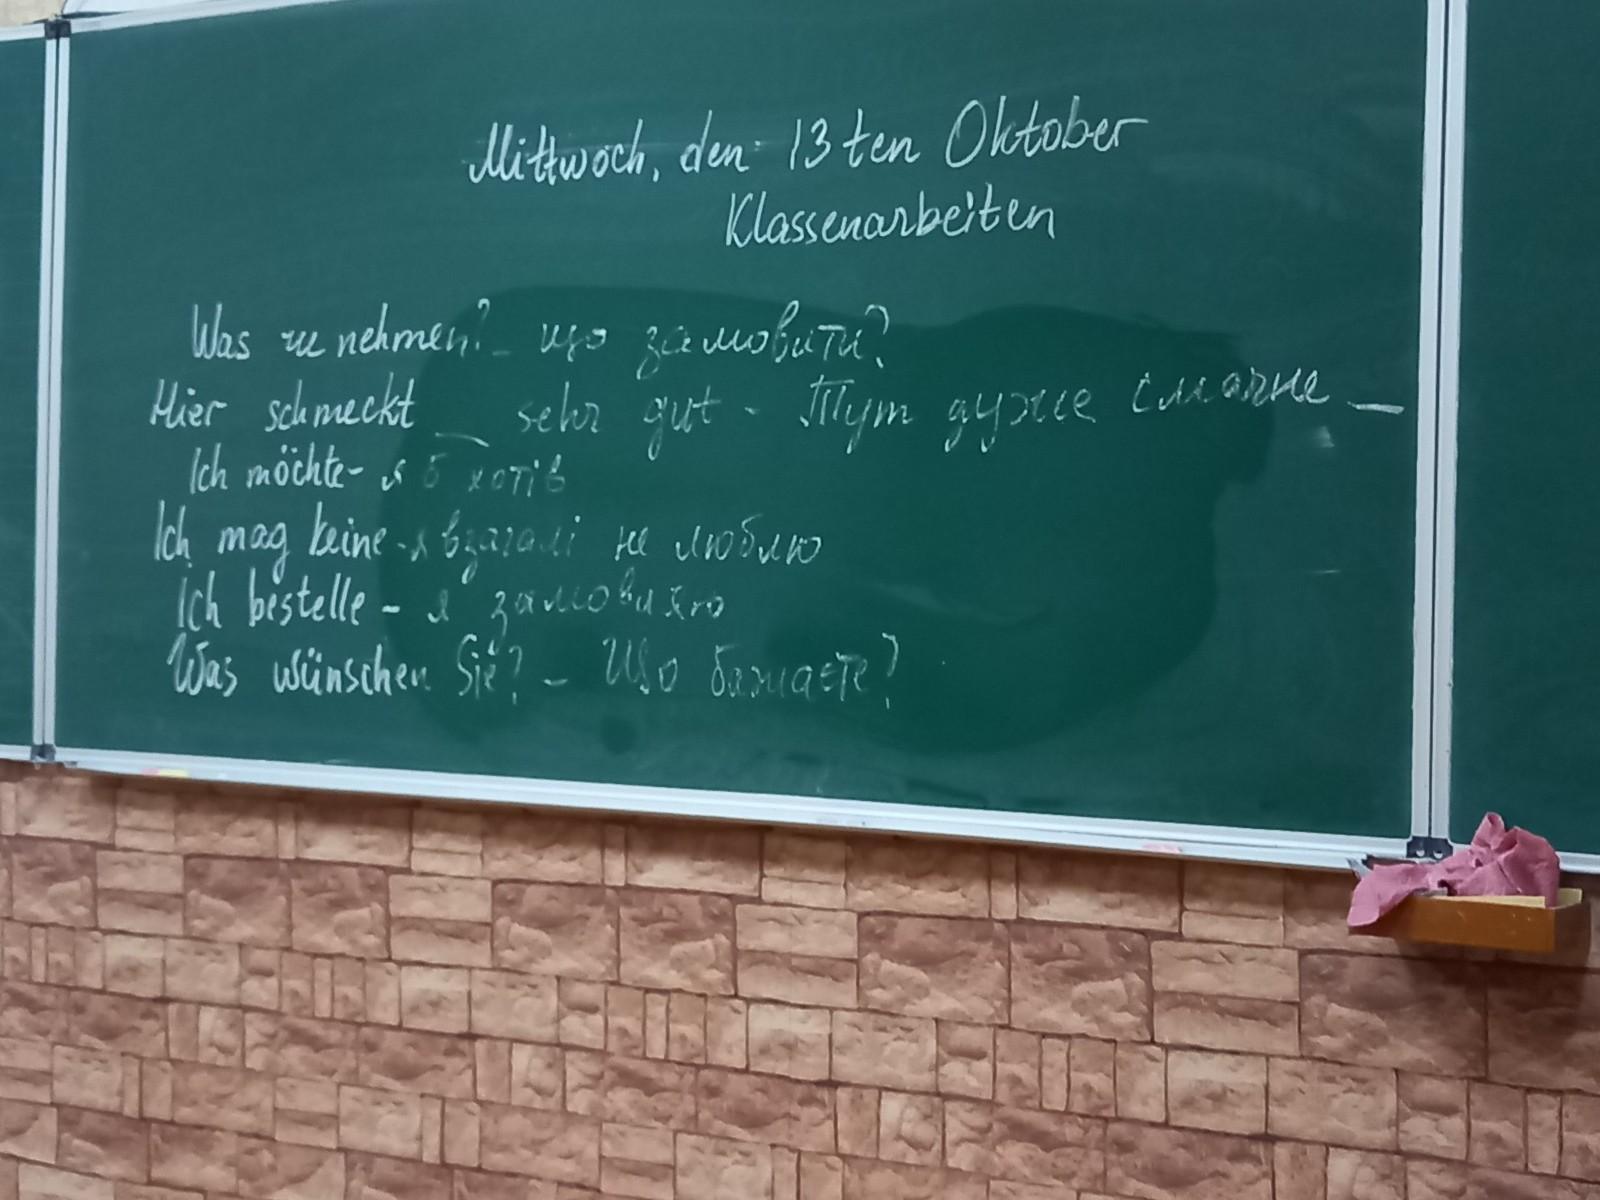 Mittwoch, den 13ten Oktober
Klassenarbeiten
Was zu nehmen? - що замовити?
Hier schmeckt __ sehr gut - Тут дуже смачне __
Ich möchte - я б хотів
Ich mag keine - я взагалі не люблю
Ich bestelle - я замовляю
Was wünschen Sie? - Що бажаєте?